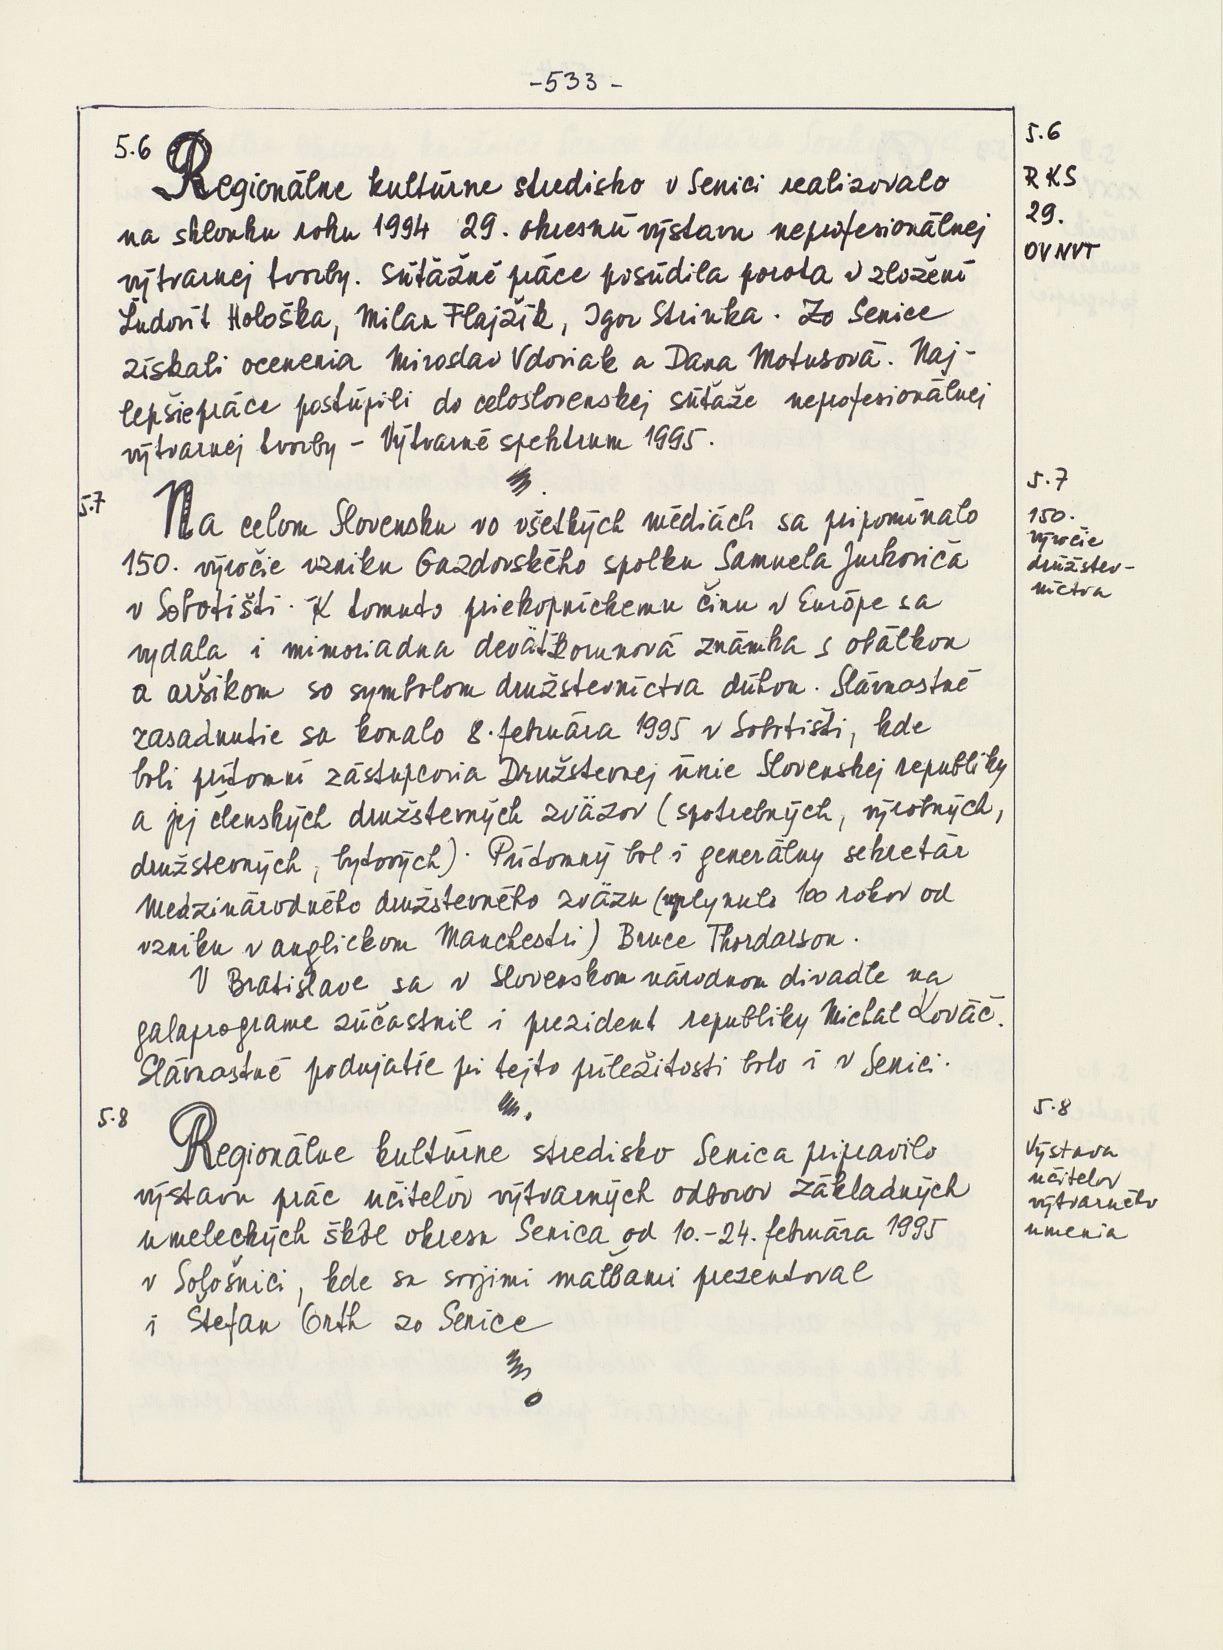 -533-
5.6
Regionálne kultúrne stredisko v Senici realizovalo
na sklonku roku 1994 29. okresnú výstavu neprofesionálnej
výtvarnej tvorby. Súťažné práce posúdila porota v zložení
Ľudovít Hološka, Milan Flajžík, Igor Strinka. Zo Senice
získali ocenenia Miroslav Vdoviak a Dana Motusová. Naj-
lepšie práce postúpili do celoslovenskej súťaže neprofesionálnej
výtvarnej tvorby - Výtvarné spektrum 1995.
5.6
RKS
29.
OVNVT
5.7
Na celom Slovensku vo všetkých médiách sa pripomínalo
150. výročie vzniku Gazdovského spolku Samuela Jurkoviča
v Sobotišti. K tomuto priekopníckemu činu v Európe sa
vydala i mimoriadna deväťkorunová známka s obálkou
a aršíkom so symbolom družstevníctva dúhou. Slávnostné
zasadnutie sa konalo 8. februára 1995 v Sobotišti, kde
boli prítomní zástupcovia Družstevnej únie Slovenskej republiky
a jej členských družstevných zväzov (spotrebných, výrobných,
družstevných, bytových). Prítomný bol i generálny sekretár
Medzinárodného družstevného zväzu (uplynulo 100 rokov od
vzniku v anglickom Manchestri) Bruce Thordarson.
V Bratislave sa v Slovenskom národnom divadle na
galaprograme zúčastnil i prezident republiky Michal Kováč.
Slávnostné podujatie pri tejto príležitosti bolo i v Senici.
5.7
150.
výročie
družstev-
níctva
5.8
Regionálne kultúrne stredisko Senica pripravilo
výstavu prác učiteľov výtvarných odborov základných
umeleckých škôl okresu Senica od 10.-24. februára 1995
v Sološnici, kde sa svojimi maľbami prezentoval
i Štefan Orth zo Senice
5.8
Výstava
učiteľov
výtvarného
umenia